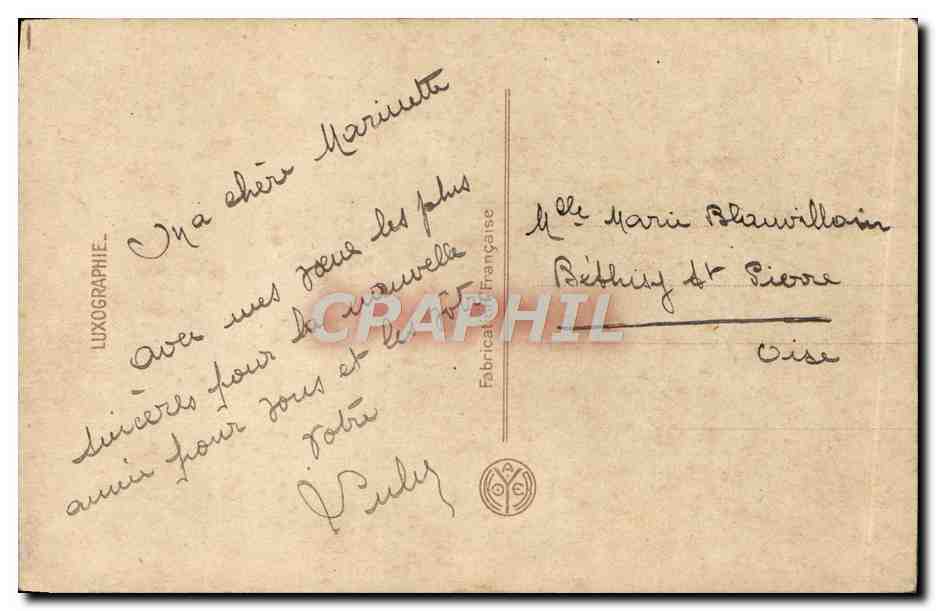 LUXOGRAPHIE_
Ma chère Marinette
avec mes vœux les plus
sincères pour la nouvelle
année pour vous et les vôtres
votre
Fabrication Française
CARTAPHIL
A
O Y E
Mlle Marie Blauvillain
Béthisy St Pierre
Oise